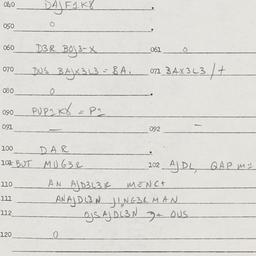 060 DAJF1K8
050 0
060 D3R BOJ3-X 061 0
070 DUS BAJX3L3 = 8A. 071 BAX3L3 /+
080 0
090 PUP1K8 = P1
091 — 092 –
100 DAR
101 BUT MUG3R 102 AJDL, QAP M=
110 AN AJD3L3R MENC+
111 ANAJDL3N J1NG3R MAN
112 OJSAJDL3N OUS
120 0